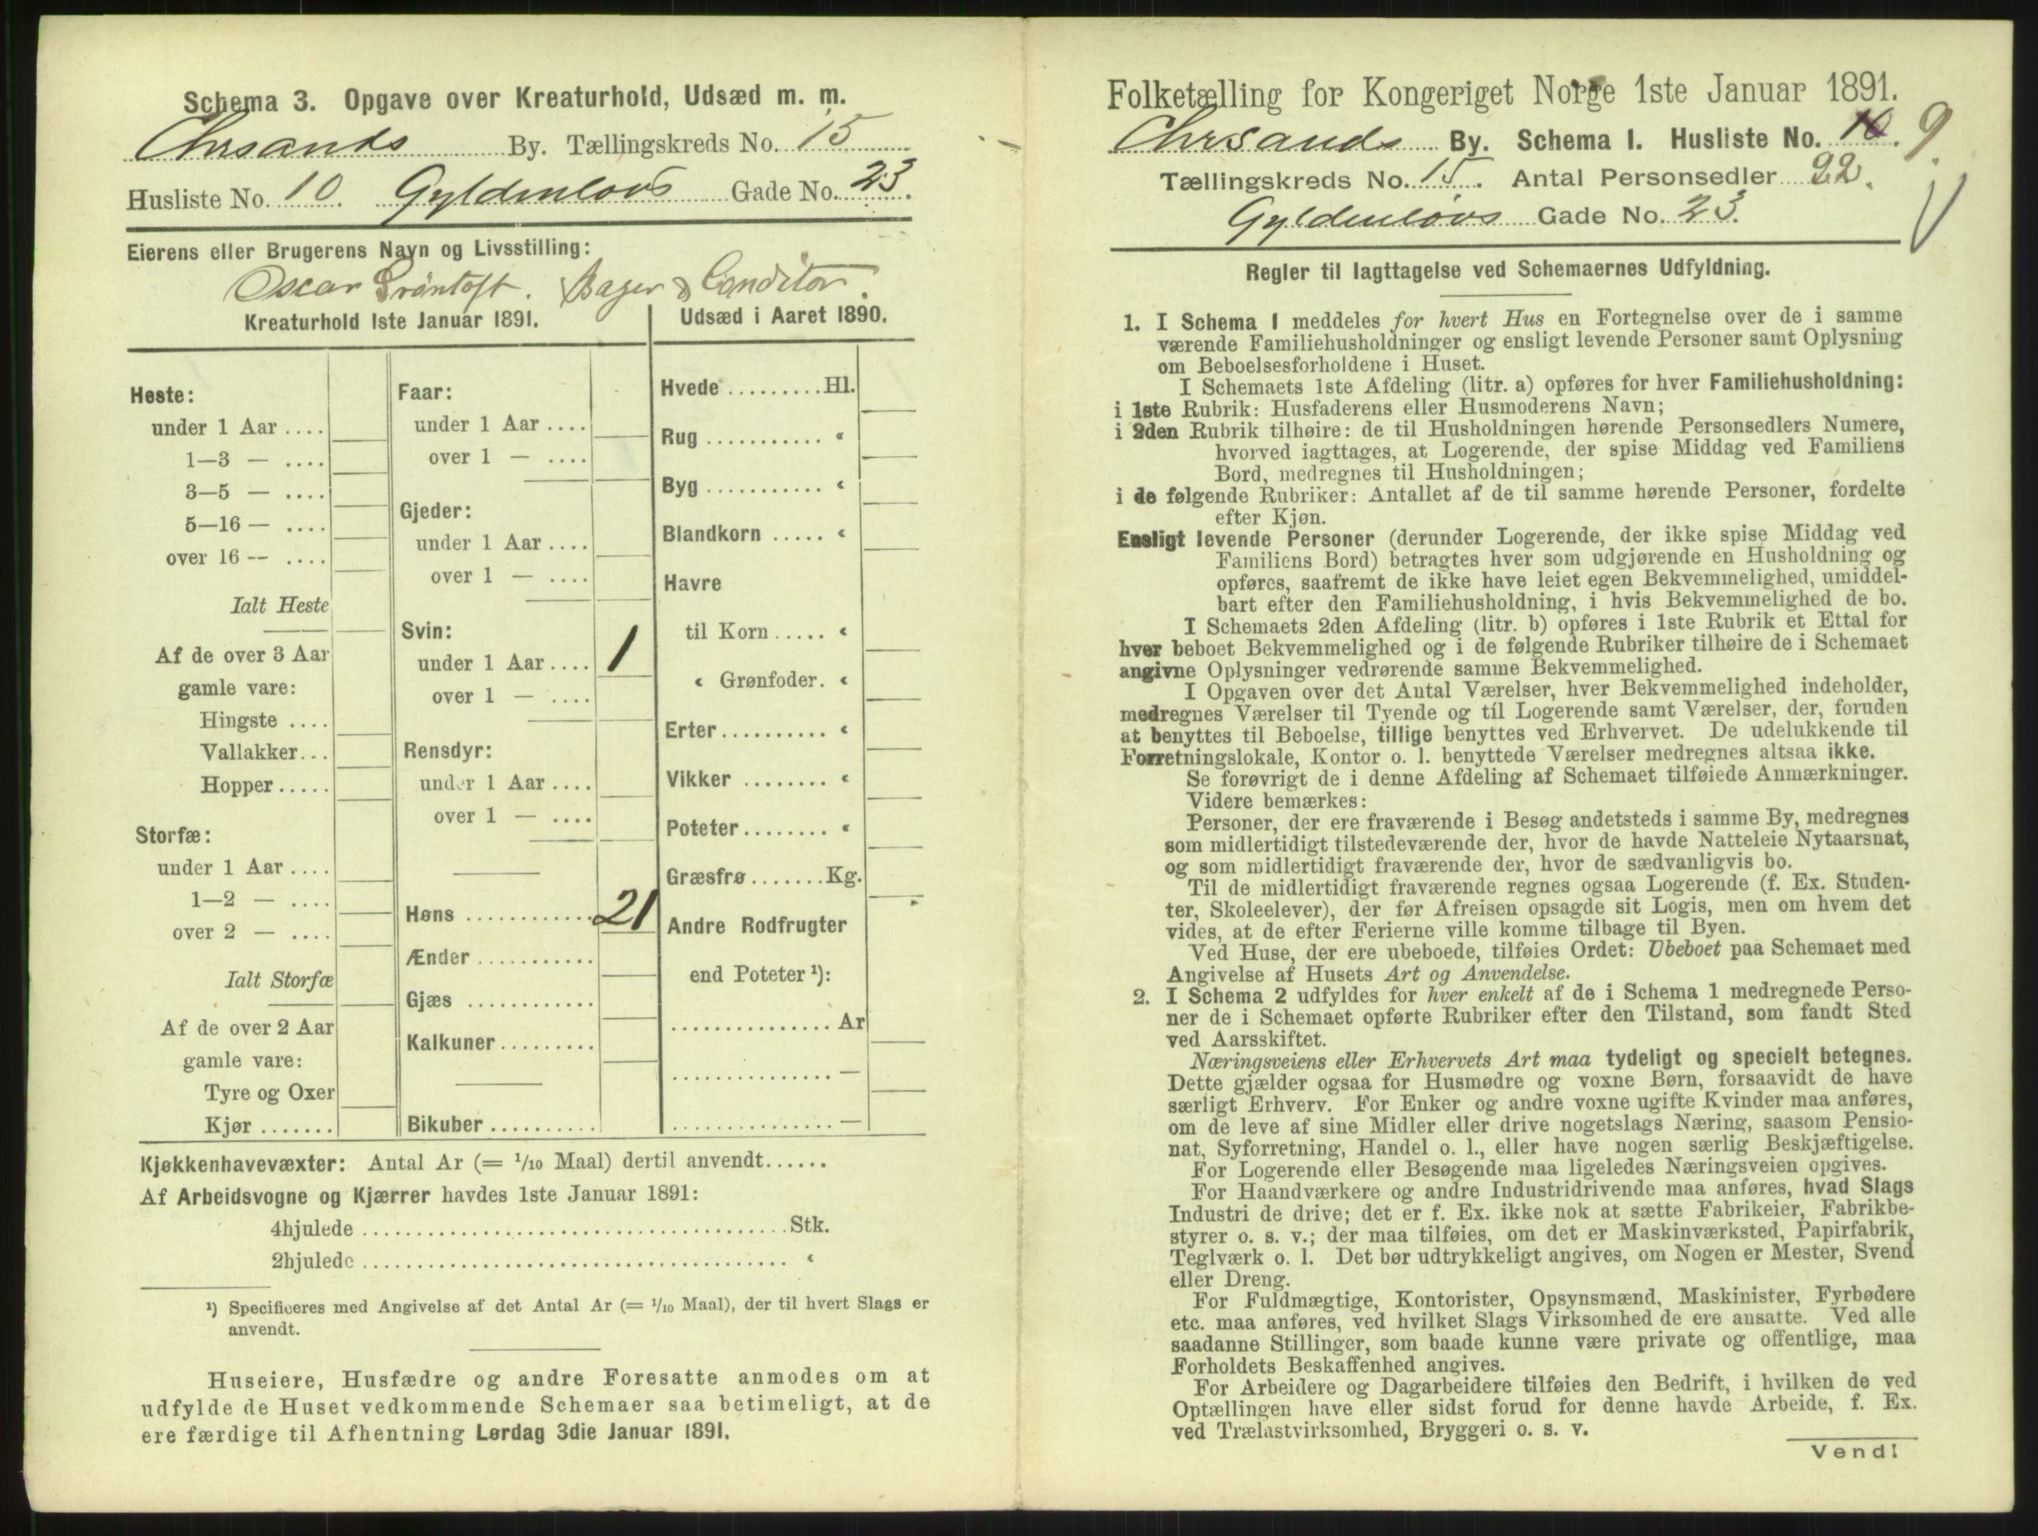 Schema 3. Opgave over Kreaturhold, Udsæd m. m.
Chrsands By. Tællingskreds No. 15
Husliste No. 10. Gyldenløvs Gade No. 23.
Eierens eller Brugerens Navn og Livsstilling:
Oscar Grøntoft. Bager & Conditor.
Kreaturhold 1ste Januar 1891.
Heste:
under 1 Aar ....
1—3 — ....
3—5 — ....
5—16 — ....
over 16 — ....
Ialt Heste
Af de over 3 Aar
gamle vare:
Hingste ....
Vallakker...
Hopper.....
Storfæ:
under 1 Aar ....
1—2 — ....
over 2 — ....
Ialt Storfæ
Af de over 2 Aar
gamle vare:
Tyre og Oxer
Kjør .......
Faar:
under 1 Aar ....
over 1 — ....
Gjeder:
under 1 Aar ....
over 1 — ....
Svin:
under 1 Aar .... 1
over 1 — ....
Rensdyr:
under 1 Aar ....
over 1 — ....
Høns ............ 21
Ænder ...........
Gjæs ............
Kalkuner.........
Bikuber ..........
Udsæd i Aaret 1890.
Hvede .........Hl.
Rug ........... "
Byg ........... "
Blandkorn ..... "
Havre
til Korn ..... "
" Grønfoder. "
Erter.......... "
Vikker ........ "
Poteter........ "
Græsfrø .......Kg.
Andre Rodfrugter
end Poteter ¹):
............... Ar
............... —
............... —
Kjøkkenhavevæxter: Antal Ar (= 1/10 Maal) dertil anvendt......
Af Arbeidsvogne og Kjærrer havdes 1ste Januar 1891:
4hjulede ........................................Stk.
2hjulede ........................................ "
¹) Specificeres med Angivelse af det Antal Ar (= 1/10 Maal), der til hvert Slags er
anvendt.
Huseiere, Husfædre og andre Foresatte anmodes om at
udfylde de Huset vedkommende Schemaer saa betimeligt, at de
ere færdige til Afhentning Lørdag 3die Januar 1891.
Folketælling for Kongeriget Norge 1ste Januar 1891.
Chrsands By. Schema I. Husliste No. 10. 9.
Tællingskreds No. 15. Antal Personsedler 22.
Gyldenløvs Gade No. 23.
Regler til Iagttagelse ved Schemaernes Udfyldning.
1. I Schema 1 meddeles for hvert Hus en Fortegnelse over de i samme
værende Familiehusholdninger og ensligt levende Personer samt Oplysning
om Beboelsesforholdene i Huset.
I Schemaets 1ste Afdeling (litr. a) opføres for hver Familiehusholdning:
i 1ste Rubrik: Husfaderens eller Husmoderens Navn;
i 2den Rubrik tilhøire: de til Husholdningen hørende Personsedlers Numere,
hvorved iagttages, at Logerende, der spise Middag ved Familiens
Bord, medregnes til Husholdningen;
i de følgende Rubriker: Antallet af de til samme hørende Personer, fordelte
efter Kjøn.
Ensligt levende Personer (derunder Logerende, der ikke spise Middag ved
Familiens Bord) betragtes hver som udgjørende en Husholdning og
opføres, saafremt de ikke have leiet egen Bekvemmelighed, umiddel-
bart efter den Familiehusholdning, i hvis Bekvemmelighed de bo.
I Schemaets 2den Afdeling (litr. b) opføres i 1ste Rubrik et Ettal for
hver beboet Bekvemmelighed og i de følgende Rubriker tilhøire de i Schemaet
angivne Oplysninger vedrørende samme Bekvemmelighed.
I Opgaven over det Antal Værelser, hver Bekvemmelighed indeholder,
medregnes Værelser til Tyende og til Logerende samt Værelser, der, foruden
at benyttes til Beboelse, tillige benyttes ved Erhvervet. De udelukkende til
Forretningslokale, Kontor o. l. benyttede Værelser medregnes altsaa ikke.
Se forøvrigt de i denne Afdeling af Schemaet tilføiede Anmærkninger.
Videre bemærkes:
Personer, der ere fraværende i Besøg andetsteds i samme By, medregnes
som midlertidigt tilstedeværende der, hvor de havde Natteleie Nytaarsnat,
og som midlertidigt fraværende der, hvor de sædvanligvis bo.
Til de midlertidigt fraværende regnes ogsaa Logerende (f. Ex. Studen-
ter, Skoleelever), der før Afreisen opsagde sit Logis, men om hvem det
vides, at de efter Ferierne ville komme tilbage til Byen.
Ved Huse, der ere ubeboede, tilføies Ordet: Ubeboet paa Schemaet med
Angivelse af Husets Art og Anvendelse.
2. I Schema 2 udfyldes for hver enkelt af de i Schema 1 medregnede Perso-
ner de i Schemaet opførte Rubriker efter den Tilstand, som fandt Sted
ved Aarsskiftet.
Næringsveiens eller Erhvervets Art maa tydeligt og specielt betegnes.
Dette gjælder ogsaa for Husmødre og voxne Børn, forsaavidt de have
særligt Erhverv. For Enker og andre voxne ugifte Kvinder maa anføres,
om de leve af sine Midler eller drive nogetslags Næring, saasom Pensio-
nat, Syforretning, Handel o. l., eller have nogen særlig Beskjæftigelse.
For Logerende eller Besøgende maa ligeledes Næringsveien opgives.
For Haandværkere og andre Industridrivende maa anføres, hvad Slags
Industri de drive; det er f. Ex. ikke nok at sætte Fabrikeier, Fabrikbe-
styrer o. s. v.; der maa tilføies, om det er Maskinværksted, Papirfabrik,
Teglværk o. l. Det bør udtrykkeligt angives, om Nogen er Mester, Svend
eller Dreng.
For Fuldmægtige, Kontorister, Opsynsmænd, Maskinister, Fyrbødere
etc. maa anføres, ved hvilket Slags Virksomhed de ere ansatte. Ved alle
saadanne Stillinger, som baade kunne være private og offentlige, maa
Forholdets Beskaffenhed angives.
For Arbeidere og Dagarbeidere tilføies den Bedrift, i hvilken de ved
Optællingen have eller sidst forud for denne havde Arbeide, f. Ex.
ved Trælastvirksomhed, Bryggeri o. s. v.
Vend!